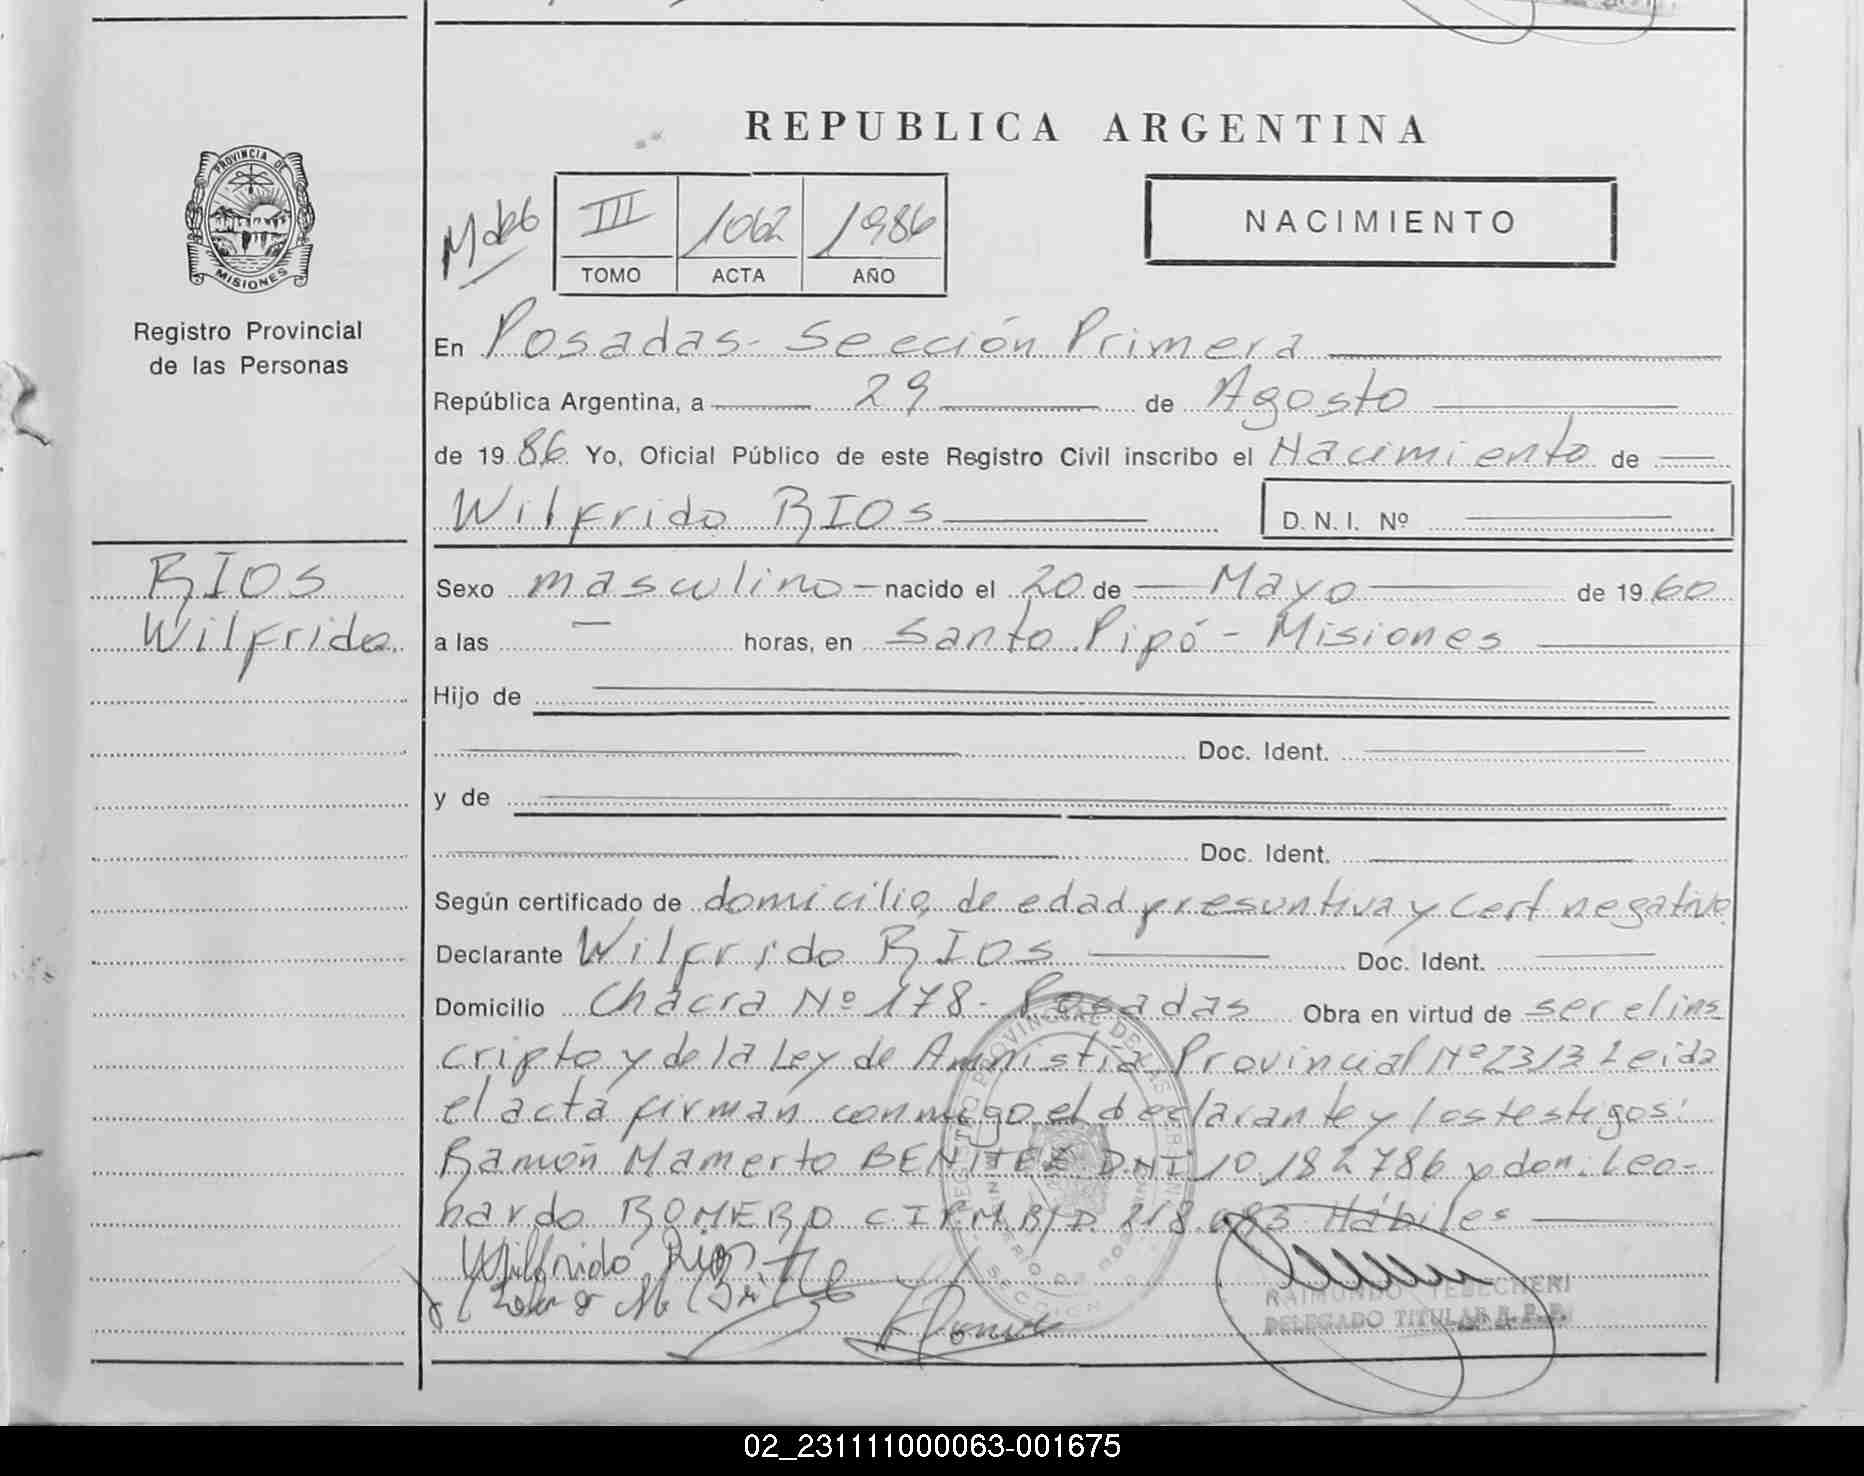 REPUBLICA ARGENTINA
PROVINCIA DE
MISIONES
Registro Provincial
de las Personas
III 1062 1986
TOMO ACTA AÑO
NACIMIENTO
En Posadas- Sección Primera
República Argentina, a 29 de Agosto
de 1986 Yo, Oficial Público de este Registro Civil inscribo el Nacimiento de
Wilfrido RIOS D. N. I. Nº
RIOS
Wilfrido
Sexo masculino nacido el 20 de Mayo de 1960
a las — horas, en Santo Pipó - Misiones
Hijo de
Doc. Ident.
y de
Doc. Ident.
Según certificado de domicilio, de edad presuntiva y Cert negativo
Declarante Wilfrido RIOS Doc. Ident.
Domicilio Chacra Nº 178- Posadas Obra en virtud de ser el ins
cripto y de la Ley de Amnistía Provincial Nº 2313 Leida
el acta firman conmigo el declarante y los testigos:
Ramón Mamerto BENITEZ DNI 10.182.786 y don Leo-
nardo ROMERO C I 218.093 Hábiles
Wilfrido Rios
RAIMUNDO TEBECHERI
DELEGADO TITULAR R. P. P.
02_231111000063-001675